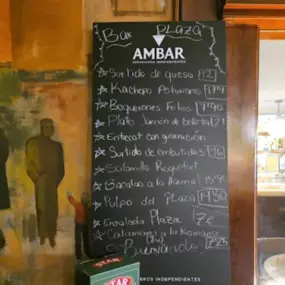 Bar Plaza
AMBAR
CERVECEROS INDEPENDIENTES
Surtido de queso 12
Kachopo Asturiano
Boquerones Fritos
Plato Jamón de bellota 21
Entrecot con guarnición
Surtido de embutidos 16
Solomillo Roquefort
Pulpo del Plaza
Ensalada Plaza 7€
Calamares a la Romana
Bienvenido
EROS INDEPENDIENTES